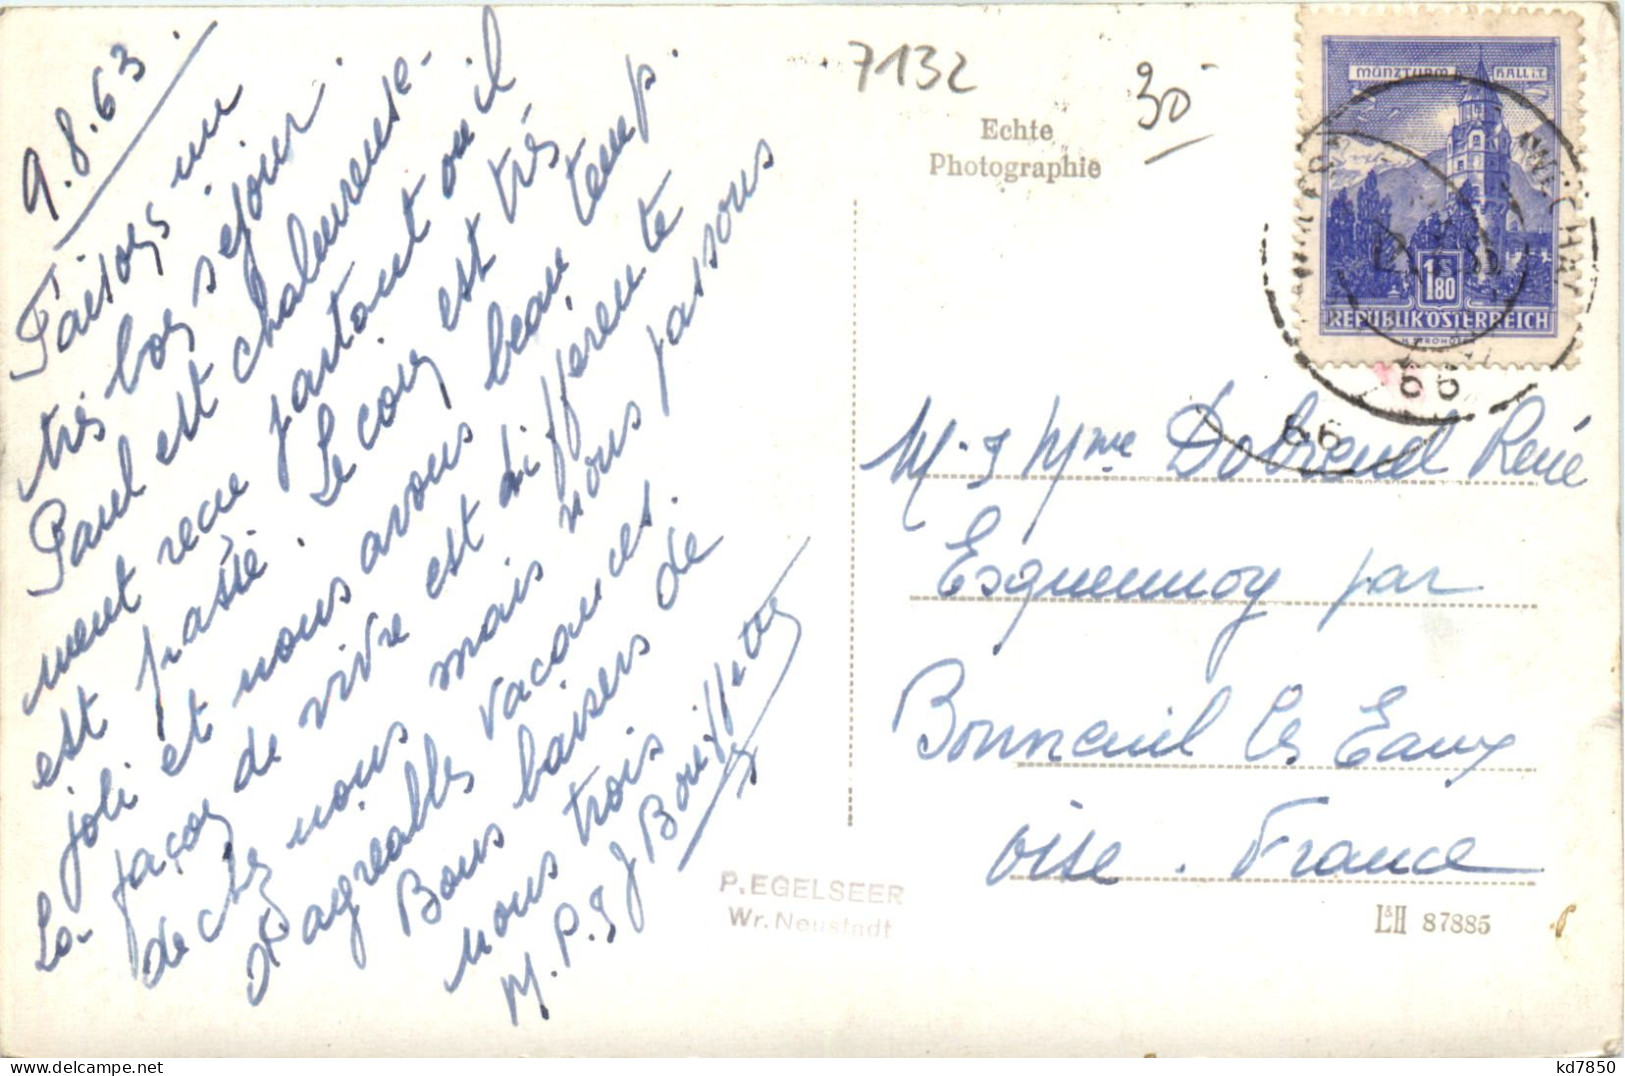 9.8.63
Faisons un
très bon séjour.
Paul est chaleureuse-
ment recu partout ou il
est passé. Le coin est très
joli et nous avons beau temp.
La façon de vivre est différente
de chez nous mais nous passons
d'agreables vacances.
Bons baisers de
nous trois
M. P. J Bouiffette
7132
30
Echte
Photographie
MÜNZTURM HALL i.T.
1S80
REPUBLIK ÖSTERREICH
66
66
M. & Mme Dobrenel René
Esquennoy par
Bonneuil les Eaux
oise. France
P. EGELSEER
Wr. Neustadt
L&H 87885
kd7850